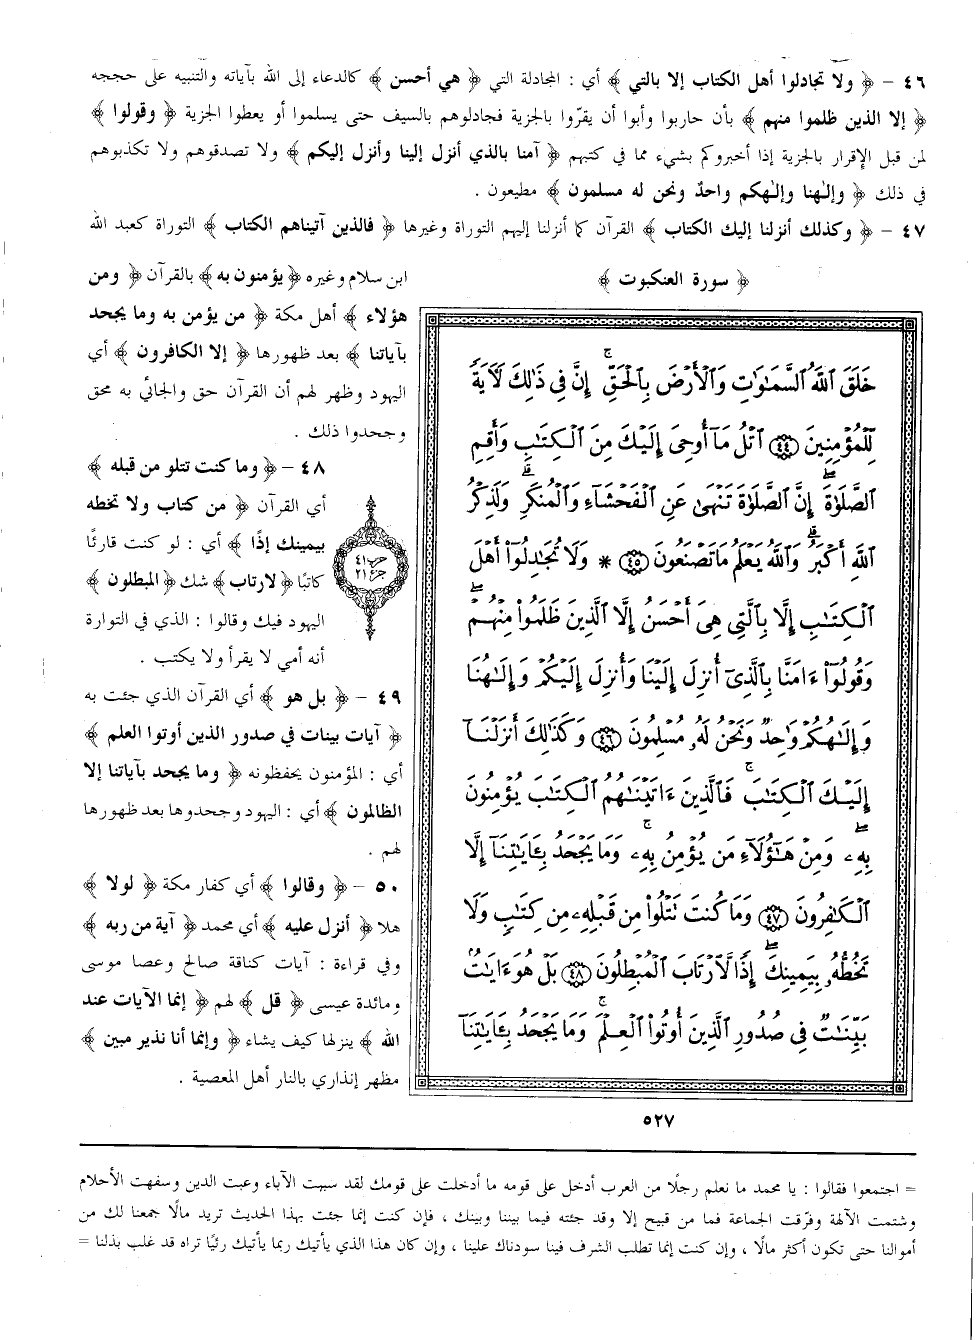 ٤٦ - ﴿ ولا تجادلوا أهل الكتاب إلا بالتي ﴾ أي : المجادلة التي ﴿ هي أحسن ﴾ كالدعاء إلى الله بآياته والتنبيه على حججه
﴿ إلا الذين ظلموا منهم ﴾ بأن حاربوا وأبوا أن يقرّوا بالجزية فجادلوهم بالسيف حتى يسلموا أو يعطوا الجزية ﴿ وقولوا ﴾
لمن قبل الإقرار بالجزية إذا أخبروكم بشيء مما في كتبهم ﴿ آمنا بالذي أنزل إلينا وأنزل إليكم ﴾ ولا تصدقوهم ولا تكذبوهم
في ذلك ﴿ وإلٰهنا وإلٰهكم واحدٌ ونحن له مسلمون ﴾ مطيعون .
٤٧ - ﴿ وكذلك أنزلنا إليك الكتاب ﴾ القرآن كما أنزلنا إليهم التوراة وغيرها ﴿ فالذين آتيناهم الكتاب ﴾ التوراة كعبد الله
ابن سلام وغيره ﴿ يؤمنون به ﴾ بالقرآن ﴿ ومن
هؤلاء ﴾ أهل مكة ﴿ من يؤمن به وما يجحد
بآياتنا ﴾ بعد ظهورها ﴿ إلا الكافرون ﴾ أي
اليهود وظهر لهم أن القرآن حق والجائي به محق
وجحدوا ذلك .
٤٨ - ﴿ وما كنت تتلو من قبله ﴾
أي القرآن ﴿ من كتاب ولا تخطه
بيمينك إذًا ﴾ أي : لو كنت قارئًا
كاتبًا ﴿ لارتاب ﴾ شك ﴿ المبطلون ﴾
اليهود فيك وقالوا : الذي في التوارة
أنه أمي لا يقرأ ولا يكتب .
٤٩ - ﴿ بل هو ﴾ أي القرآن الذي جئت به
﴿ آيات بينات في صدور الذين أوتوا العلم ﴾
أي : المؤمنون يحفظونه ﴿ وما يجحد بآياتنا إلا
الظالمون ﴾ أي : اليهود وجحدوها بعد ظهورها
لهم .
٥٠ - ﴿ وقالوا ﴾ أي كفار مكة ﴿ لولا ﴾
هلا ﴿ أنزل عليه ﴾ أي محمد ﴿ آية من ربه ﴾
وفي قراءة : آيات كناقة صالح وعصا موسى
ومائدة عيسى ﴿ قل ﴾ لهم ﴿ إنما الآيات عند
الله ﴾ ينزلها كيف يشاء ﴿ وإنما أنا نذير مبين ﴾
مظهر إنذاري بالنار أهل المعصية .
حزب ٤١
جزء ٢١
﴿ سورة العنكبوت ﴾
خَلَقَ ٱللَّهُ ٱلسَّمَٰوَٰتِ وَٱلْأَرْضَ بِٱلْحَقِّ ۚ إِنَّ فِى ذَٰلِكَ لَأٓيَةً
لِّلْمُؤْمِنِينَ ٤٤ ٱتْلُ مَآ أُوحِىَ إِلَيْكَ مِنَ ٱلْكِتَٰبِ وَأَقِمِ
ٱلصَّلَوٰةَ ۖ إِنَّ ٱلصَّلَوٰةَ تَنْهَىٰ عَنِ ٱلْفَحْشَآءِ وَٱلْمُنكَرِ ۗ وَلَذِكْرُ
ٱللَّهِ أَكْبَرُ ۗ وَٱللَّهُ يَعْلَمُ مَا تَصْنَعُونَ ٤٥ * وَلَا تُجَٰدِلُوٓا۟ أَهْلَ
ٱلْكِتَٰبِ إِلَّا بِٱلَّتِى هِىَ أَحْسَنُ إِلَّا ٱلَّذِينَ ظَلَمُوا۟ مِنْهُمْ ۖ
وَقُولُوٓا۟ ءَامَنَّا بِٱلَّذِىٓ أُنزِلَ إِلَيْنَا وَأُنزِلَ إِلَيْكُمْ وَإِلَٰهُنَا
وَإِلَٰهُكُمْ وَٰحِدٌ وَنَحْنُ لَهُۥ مُسْلِمُونَ ٤٦ وَكَذَٰلِكَ أَنزَلْنَآ
إِلَيْكَ ٱلْكِتَٰبَ ۚ فَٱلَّذِينَ ءَاتَيْنَٰهُمُ ٱلْكِتَٰبَ يُؤْمِنُونَ
بِهِۦ ۖ وَمِنْ هَٰٓؤُلَآءِ مَن يُؤْمِنُ بِهِۦ ۚ وَمَا يَجْحَدُ بِـَٔايَٰتِنَآ إِلَّا
ٱلْكَٰفِرُونَ ٤٧ وَمَا كُنتَ تَتْلُوا۟ مِن قَبْلِهِۦ مِن كِتَٰبٍ وَلَا
تَخُطُّهُۥ بِيَمِينِكَ ۖ إِذًا لَّٱرْتَابَ ٱلْمُبْطِلُونَ ٤٨ بَلْ هُوَ ءَايَٰتٌۢ
بَيِّنَٰتٌ فِى صُدُورِ ٱلَّذِينَ أُوتُوا۟ ٱلْعِلْمَ ۚ وَمَا يَجْحَدُ بِـَٔايَٰتِنَآ
٥٢٧
= اجتمعوا فقالوا : يا محمد ما نعلم رجلًا من العرب أدخل على قومه ما أدخلت على قومك لقد سببت الآباء وعبت الدين وسفهت الأحلام
وشتمت الآلهة وفرّقت الجماعة فما من قبيح إلا وقد جئته فيما بيننا وبينك ، فإن كنت إنما جئت بهذا الحديث تريد مالًا جمعنا لك من
أموالنا حتى تكون أكثر مالًا ، وإن كنت إنما تطلب الشرف فينا سودناك علينا ، وإن كان هذا الذي يأتيك ربما يأتيك رئيًا تراه قد غلب بذلنا =